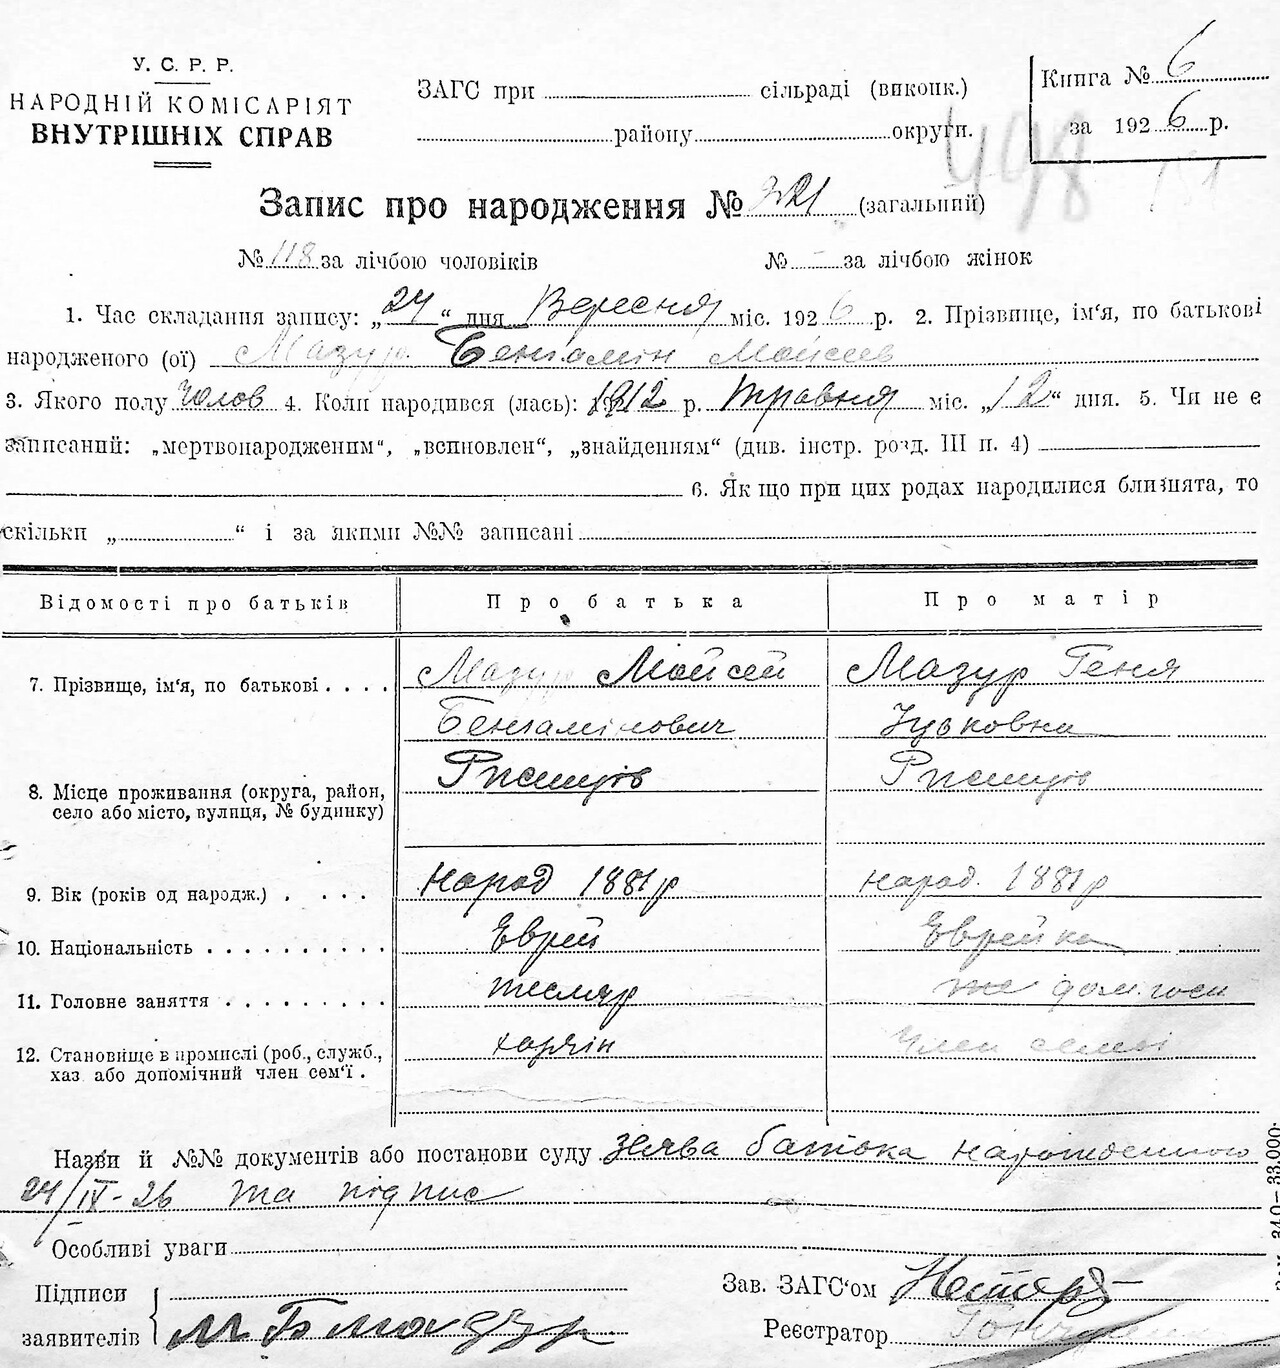 У. С. Р. Р.
НАРОДНІЙ КОМІСАРІЯТ
ВНУТРІШНІХ СПРАВ
ЗАГС при сільраді (виконк.)
району округи.
Книга № 6
за 1926 р.
498
Запис про народження № 221 (загальний)
№ 118 за лічбою чоловіків № - за лічбою жінок
1. Час складання запису: „24“ дня Вересня міс. 1926 р. 2. Прізвище, ім‘я, по батькові
народженого (ої) Мазур Беньамін Мойсеев
3. Якого полу Чолов 4. Коли народився (лась): 1912 р. Травня міс. „12“ дня. 5. Чи не є
записаний: „мертвонародженим“, „вспновлен“, „знайденням“ (див. інстр. розд. III п. 4)
6. Як що при цих родах народилися близнята, то
скільки „ “ і за якими №№ записані
Відомості про батьків Про батька Про матір
7. Прізвище, ім‘я, по батькові . . . . Мазур Мойсей Мазур Геня
Беньамінович Зуьковна
Ржищів Ржищів
8. Місце проживання (округа, район,
село або місто, вулиця, № будинку)
9. Вік (років од народж.) . . . . народ 1881 р народ. 1881 р
10. Національність . . . . . . . . . . Єврей Єврейка
11. Головне заняття . . . . . . . . . тесляр дом. госп
12. Становище в промислі (роб., служб., хазяїн Член семьі
хаз або допомічний член сем‘ї .
Назви й №№ документів або постанови суду заява батька нарожденного
24/IX-26 та підпис
Особливі уваги
Підписи
заявителів М Б Мазур
Зав. ЗАГС‘ом
Реєстратор